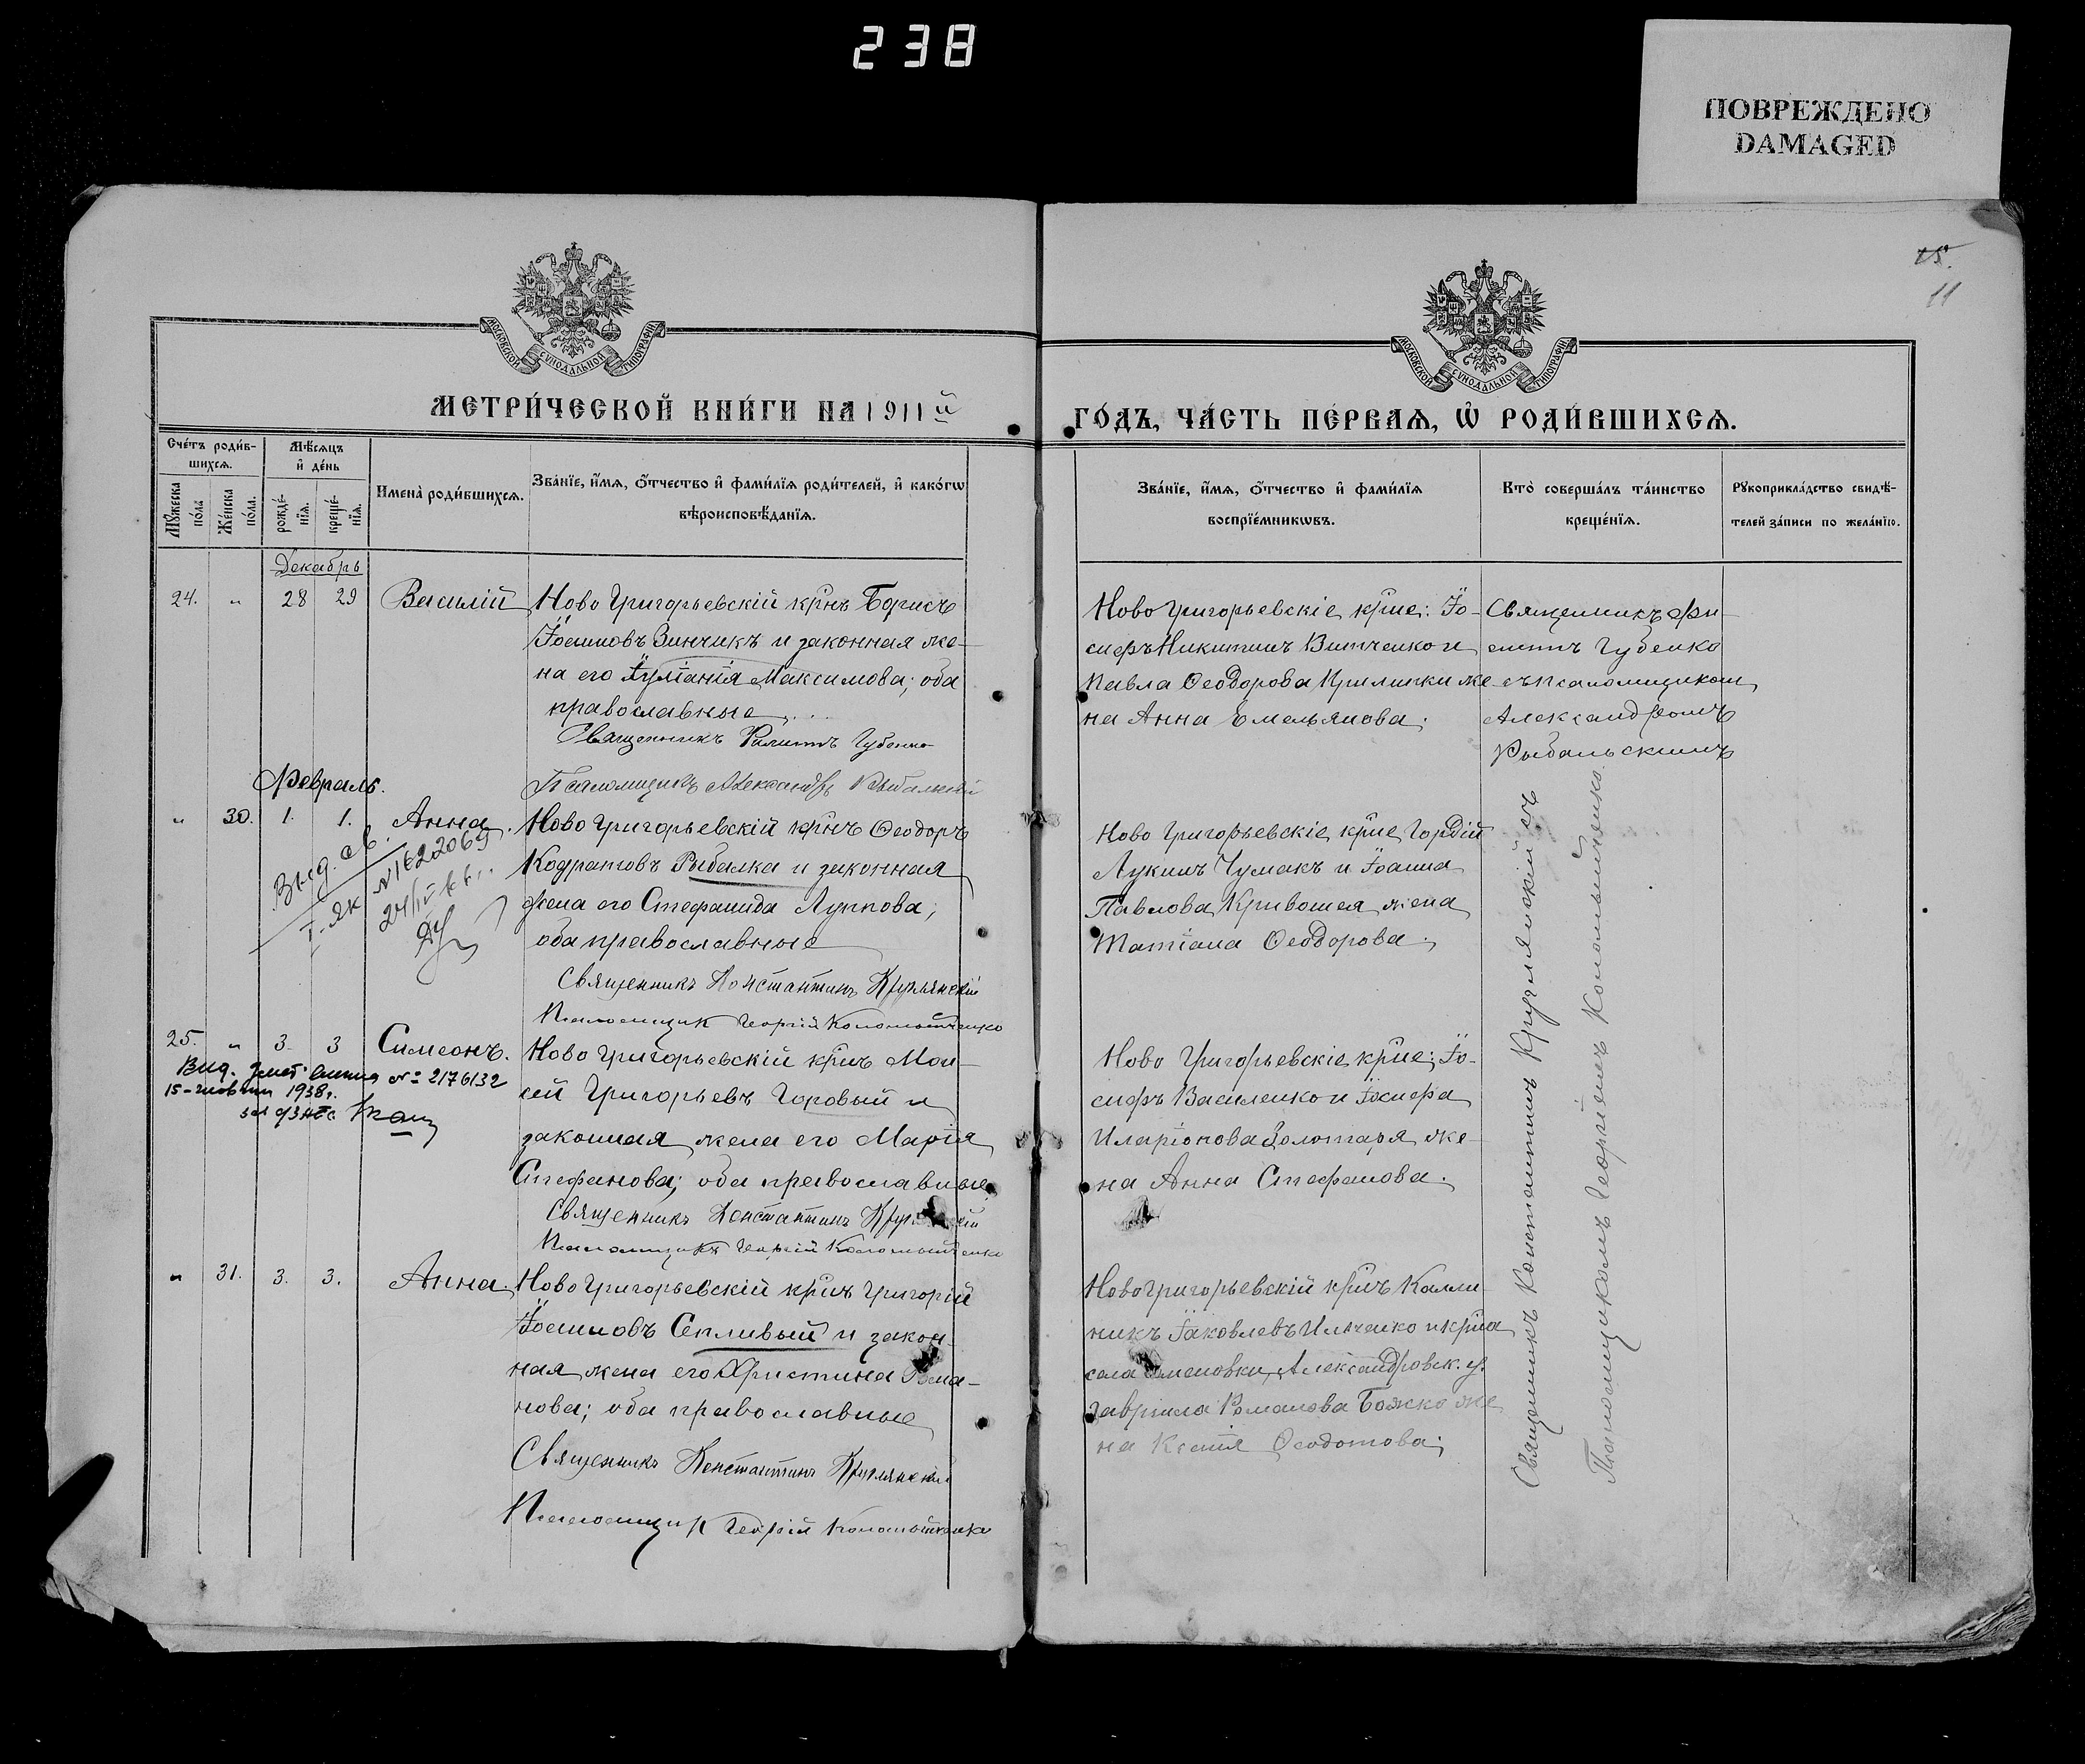 238
ПОВРЕЖДЕНО
DAMAGED
15.
11
МОСКОВСКОЙ СУНОДАЛЬНОЙ ТИПОГРАФІИ
МОСКОВСКОЙ СУНОДАЛЬНОЙ ТИПОГРАФІИ
МЕТРИ́ЧЕСКОЙ КНИ́ГИ НА 1911й
ГО́ДЪ, ЧА́СТЬ ПЕ́РВАѦ, Ѡ҆ РОДИ́ВШИХСѦ.
Сче́тъ роди́в-
шихсѧ.
Мѣ́сѧцъ
и҆ де́нь
Мꙋ́жеска
по́ла
Же́нска
по́ла.
рожде́-
нїѧ.
креще́-
нїѧ.
Имена̀ роди́вшихсѧ.
Зва́нїе, и҆́мѧ, ѻ҆́тчество и҆ фами́лїѧ роди́телей, и҆ како́гѡ
вѣроисповѣ́данїѧ.
Зва́нїе, и҆́мѧ, ѻ҆́тчество и҆ фами́лїѧ
воспрїе́мникѡвъ.
Кто̀ соверша́лъ та́инство
креще́нїѧ.
Рꙋкоприкла́дство свидѣ́-
телей за́писи по жела́нїю.
Декабрь
24. " 28 29 Василій
Ново Григорьевскій крнъ Борисъ
Іоанновъ Зинчикъ и законная же-
на его Іуліанія Максимова; оба
православные
Священникъ Филиппъ Губенко
Псаломщикъ Александръ Рыбальскій
Ново Григорьевскіе крне: Іо-
сифъ Никитинъ Витченко и
Павла Ѳеодорова Крилички же
на Анна Емельянова.
Священникъ Фи-
липпъ Губенко
съ псаломщикомъ
Александромъ
Рыбальскимъ
Февраль.
" 30. 1. 1. Анна.
Выд. св.
I-ЯК № 162069
Ново Григорьевскій крнъ Ѳеодоръ
Кодратовъ Рыбалка и законная
жена его Стефанида Луппова;
оба православные
Священникъ Константинъ Круглянскій
Псаломщик Георгій Коломыйченко
Ново Григорьевскіе крне Гордій
Лукинъ Чумакъ и Іоанна
Павлова Кривошея жена
Татіана Ѳеодорова.
25. " 3. 3 Симеонъ.
Вид. № 2176132
15- 1938 г.
Ново Григорьевскій крнъ Мои-
сей Григорьевъ Горовый и
законная жена его Марія
Стефанова; оба православные
Священникъ Константинъ
Псаломщикъ Георгій Коломыйченко
Ново Григорьевскіе крне; Іо-
сифъ Василенко и Іосифа
Иларіонова Золотаря же-
на Анна Стефанова.
" 31. 3. 3. Анна.
Ново Григорьевскій крнъ Григорій
Іоанновъ Сепливый и закон-
ная жена его Христина Рома-
нова; оба православные
Священникъ Константинъ Круглянскій
Псаломщик Георгій Коломыйченко
Ново Григорьевскій крнъ Калли-
никъ Іаковлевъ Ильченко и крна
села Александровск. у.
Гавріила Романова Божко же
на Ксенія Ѳеодотова;
Священникъ Константинъ Круглянскій съ
Псаломщикомъ Георгіемъ Коломыйченко